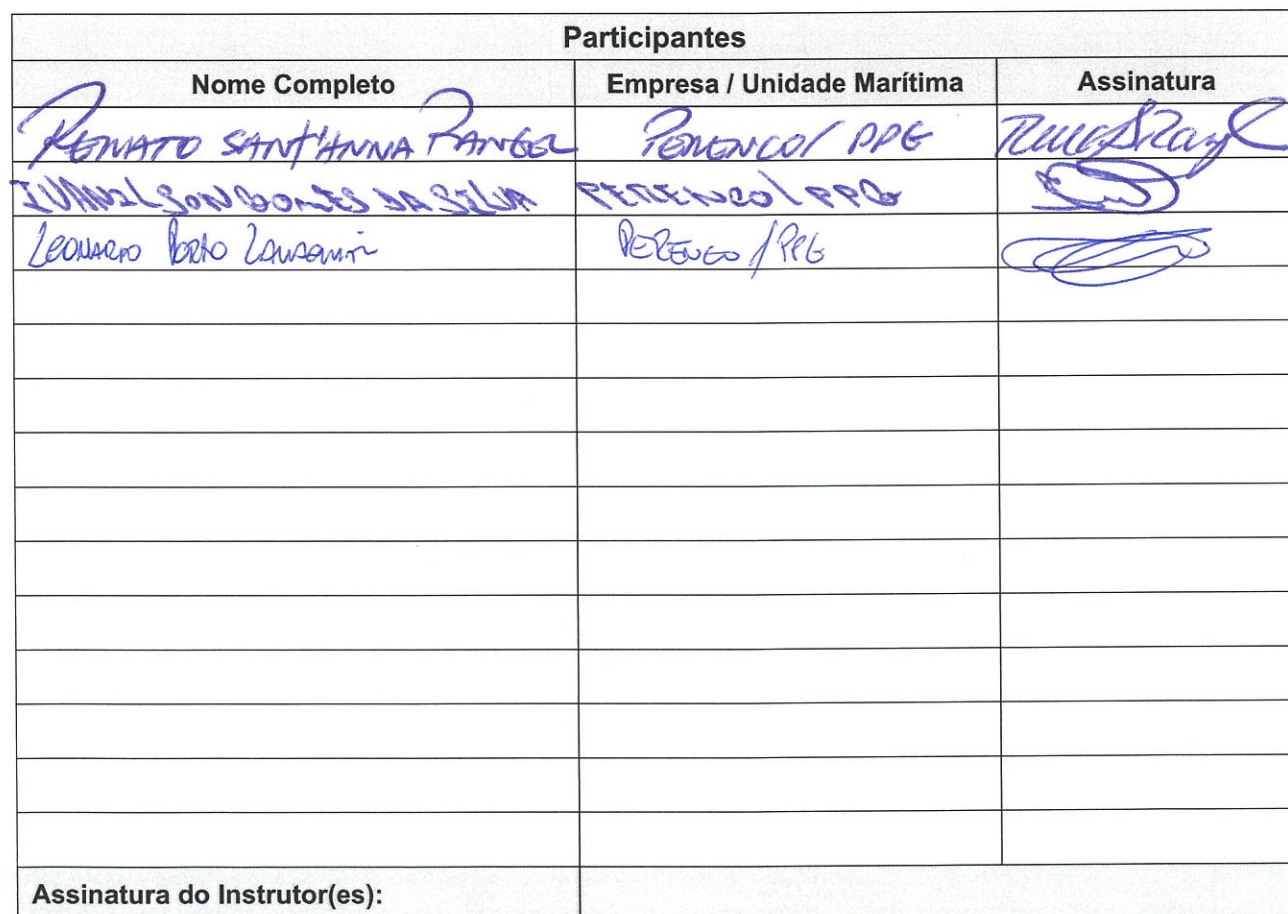 Participantes
Nome Completo Empresa / Unidade Marítima Assinatura
RENATO SANT'ANNA RANGEL PERENCO / PPG
IVANILSON GOMES DA SILVA PERENCO / PPG
LEONARDO PORTO PERENCO / PPG
Assinatura do Instrutor(es):